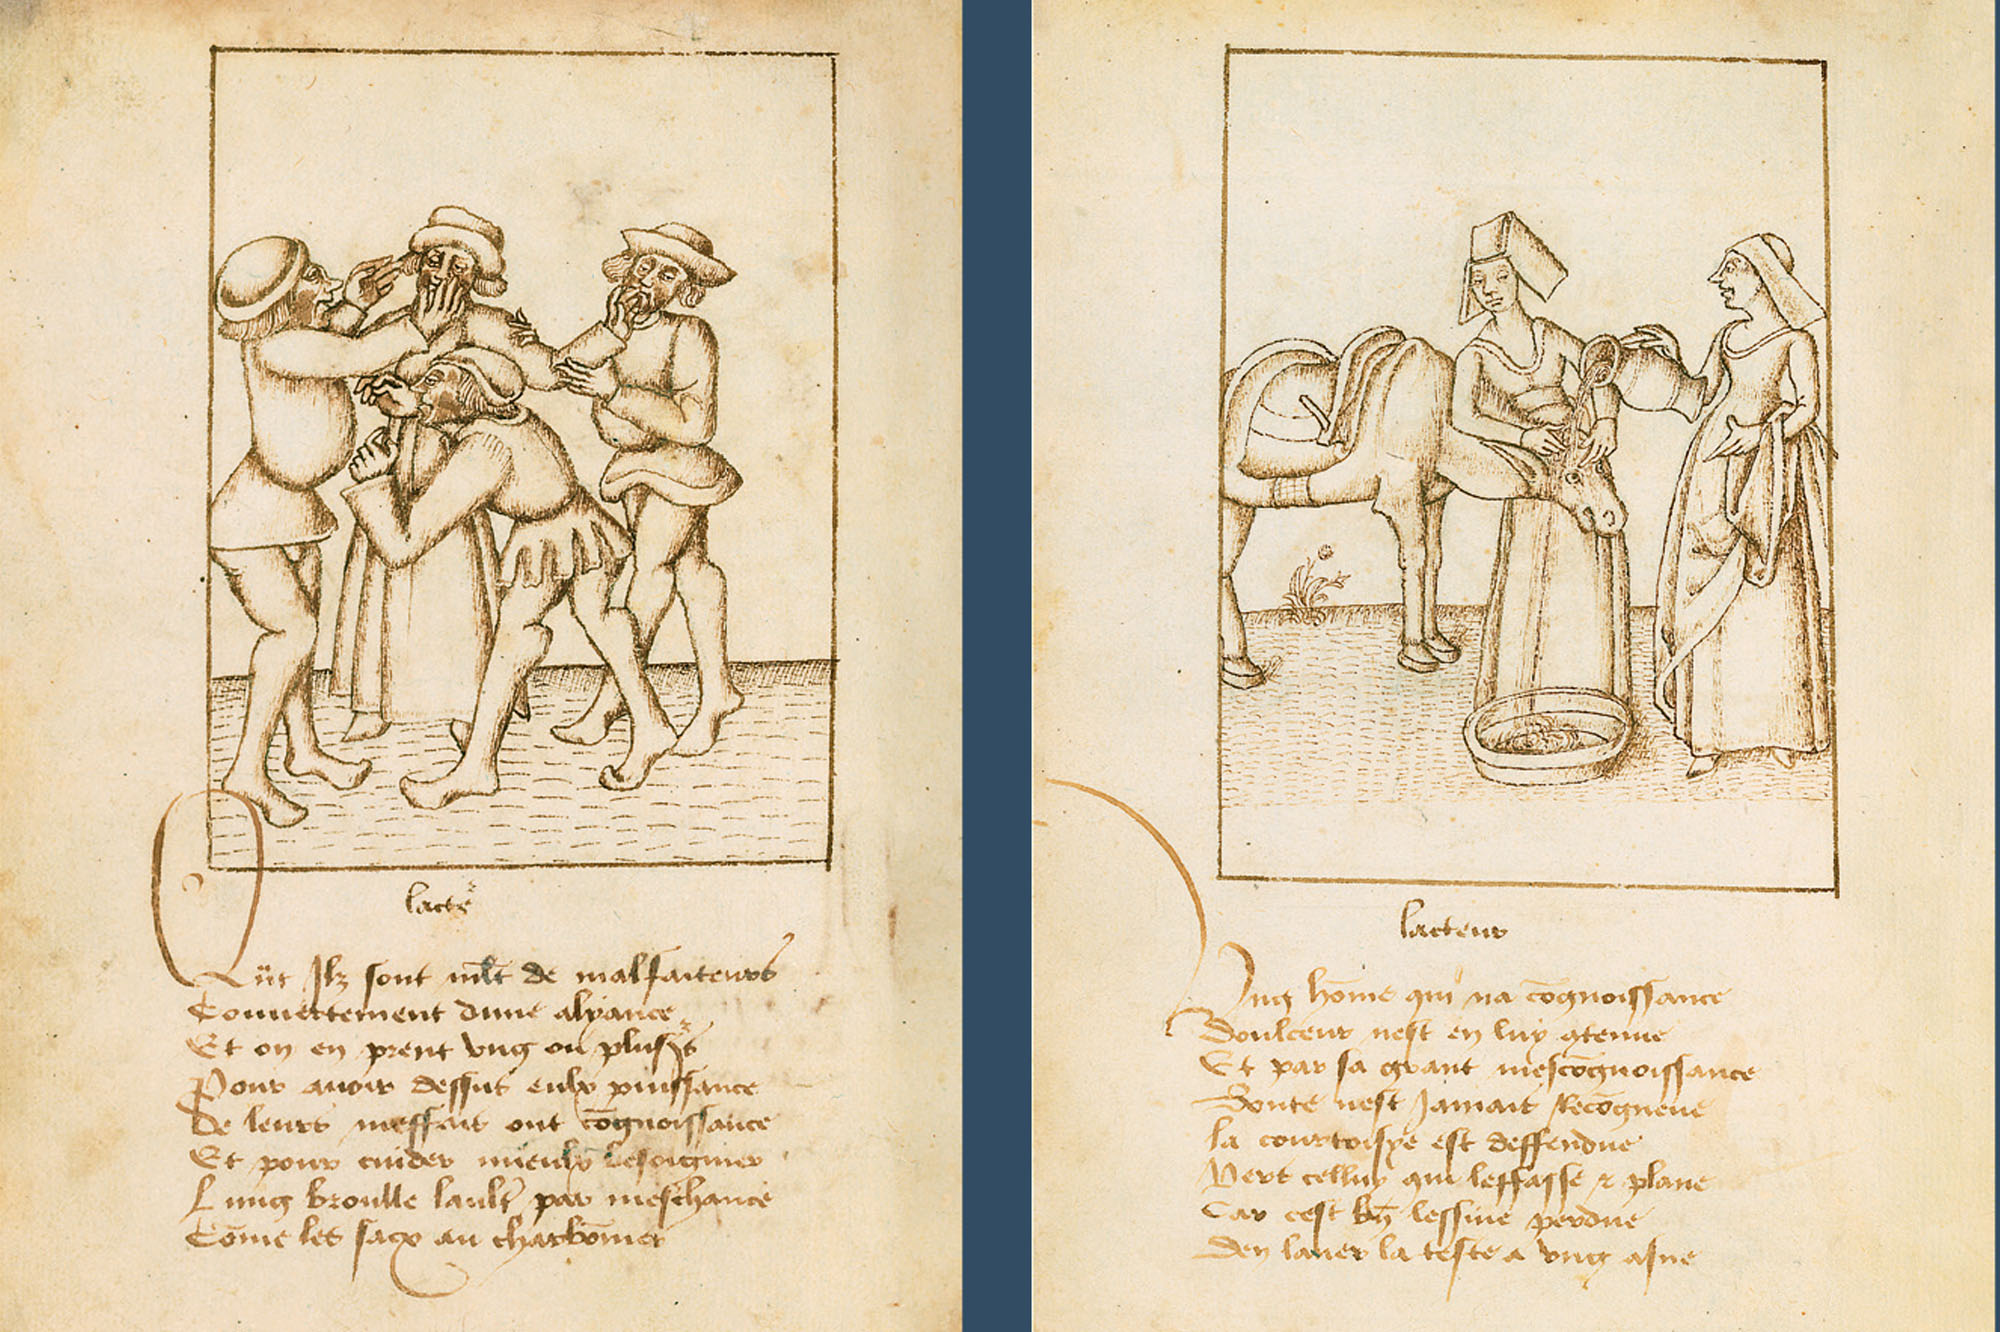 lacte^r
Qūt Ilz sont mlt de malfaiteurs
Couuertement dune alyance
Et on en prent vng ou plusrs
Pour auoir dessus eulx puissance
De leurs meffait ont cōgnoissance
Et pour cuider mieulx besoignier
Lung broulle lault par meschance
Cōme les sacx au charbōnier
lacteur
Ung hōme qui na cōgnoissance
Doulceur nest en luy atenue
Et par sa grant mescōgnoissance
Bonte nest Jamais Recōgneue
la courtoisye est deffendue
Vers celluy qui leffasse & plane
Car cest bn lessiue perdue
Den lauer la teste a vng asne